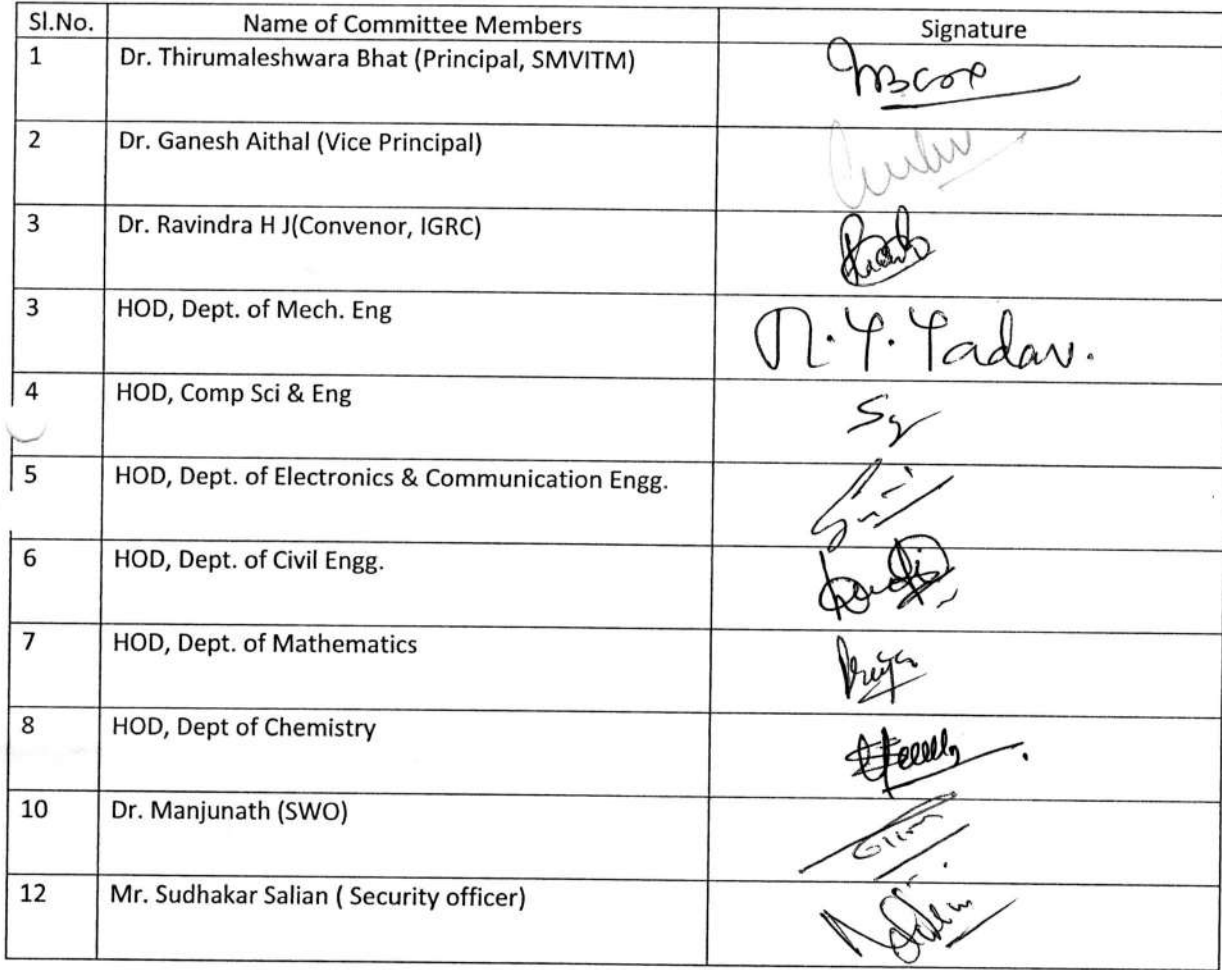 Sl.No. Name of Committee Members Signature
1 Dr. Thirumaleshwara Bhat (Principal, SMVITM)
2 Dr. Ganesh Aithal (Vice Principal)
3 Dr. Ravindra H J(Convenor, IGRC)
3 HOD, Dept. of Mech. Eng N.Y.Yadav.
4 HOD, Comp Sci & Eng
5 HOD, Dept. of Electronics & Communication Engg.
6 HOD, Dept. of Civil Engg.
7 HOD, Dept. of Mathematics
8 HOD, Dept of Chemistry
10 Dr. Manjunath (SWO)
12 Mr. Sudhakar Salian ( Security officer)